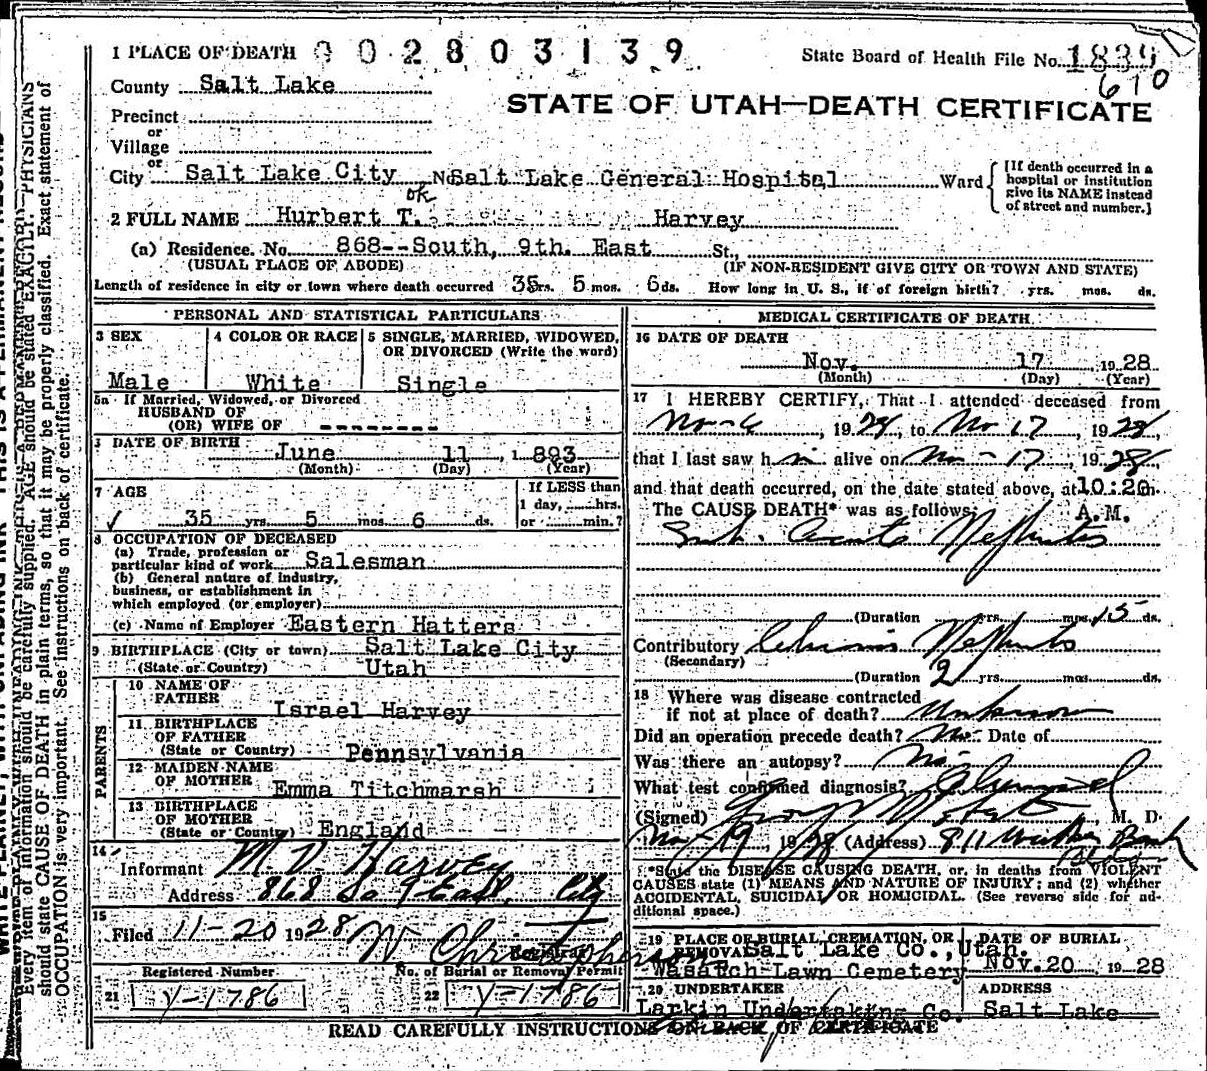 1 PLACE OF DEATH 002803139 State Board of Health File No. 1839
610
County Salt Lake
STATE OF UTAH—DEATH CERTIFICATE
Precinct
or
Village
or
City Salt Lake City No. Salt Lake General Hospital Ward
[If death occurred in a hospital or institution give its NAME instead of street and number.]
ok
2 FULL NAME Hurbert T. Harvey
(a) Residence. No. 868--South, 9th. East St.,
(USUAL PLACE OF ABODE) (IF NON-RESIDENT GIVE CITY OR TOWN AND STATE)
Length of residence in city or town where death occurred 35 yrs. 5 mos. 6 ds. How long in U. S., if of foreign birth? yrs. mos. ds.
PERSONAL AND STATISTICAL PARTICULARS
3 SEX
Male
4 COLOR OR RACE
White
5 SINGLE, MARRIED, WIDOWED,
OR DIVORCED (Write the word)
Single
5a If Married, Widowed, or Divorced
HUSBAND OF
(OR) WIFE OF --------
DATE OF BIRTH
June 11, 1893
(Month) (Day) (Year)
7 AGE
35 yrs. 5 mos. 6 ds.
If LESS than
1 day, hrs.
or min.?
8 OCCUPATION OF DECEASED
(a) Trade, profession or
particular kind of work Salesman
(b) General nature of industry,
business, or establishment in
which employed (or employer)
(c) Name of Employer Eastern Hatters
9 BIRTHPLACE (City or town) Salt Lake City
(State or Country) Utah
PARENTS
10 NAME OF
FATHER
Israel Harvey
11 BIRTHPLACE
OF FATHER
(State or Country) Pennsylvania
12 MAIDEN NAME
OF MOTHER
Emma Titchmarsh
13 BIRTHPLACE
OF MOTHER
(State or Country) England
14
Informant M V Harvey
Address 868 So 9 East, City
15
Filed 11-20 1928 W Christopherson
Registrar
Registered Number
21 Y-1786
No. of Burial or Removal Permit
22 Y-1786
MEDICAL CERTIFICATE OF DEATH
16 DATE OF DEATH
Nov. 17, 1928
(Month) (Day) (Year)
17 I HEREBY CERTIFY, That I attended deceased from
Nov-6, 1928, to Nov 17, 1928,
that I last saw him alive on Nov-17, 1928,
and that death occurred, on the date stated above, at 10:20 m.
The CAUSE DEATH* was as follows: A.M.
Sub. Acute Nephritis
(Duration yrs. mos. 15 ds.
Contributory Chronic Nephritis
(Secondary)
(Duration 2 yrs. mos. ds.
18 Where was disease contracted
if not at place of death? Unknown
Did an operation precede death? No Date of
Was there an autopsy? No
What test confirmed diagnosis?
(Signed) M. D.
Nov-19, 1928 (Address) 811 Walker Bank
Bldg
*State the DISEASE CAUSING DEATH, or, in deaths from VIOLENT
CAUSES state (1) MEANS AND NATURE OF INJURY; and (2) whether
ACCIDENTAL, SUICIDAL, OR HOMICIDAL. (See reverse side for additional space.)
19 PLACE OF BURIAL, CREMATION, OR
REMOVAL Salt Lake Co., Utah.
Wasatch Lawn Cemetery
DATE OF BURIAL
Nov. 20, 1928
20 UNDERTAKER
Larkin Undertaking Co.
ADDRESS
Salt Lake
READ CAREFULLY INSTRUCTIONS ON BACK OF CERTIFICATE
Every item of information should be carefully supplied. AGE should be stated EXACTLY. PHYSICIANS
should state CAUSE OF DEATH in plain terms, so that it may be properly classified. Exact statement of
OCCUPATION is very important. See instructions on back of certificate.